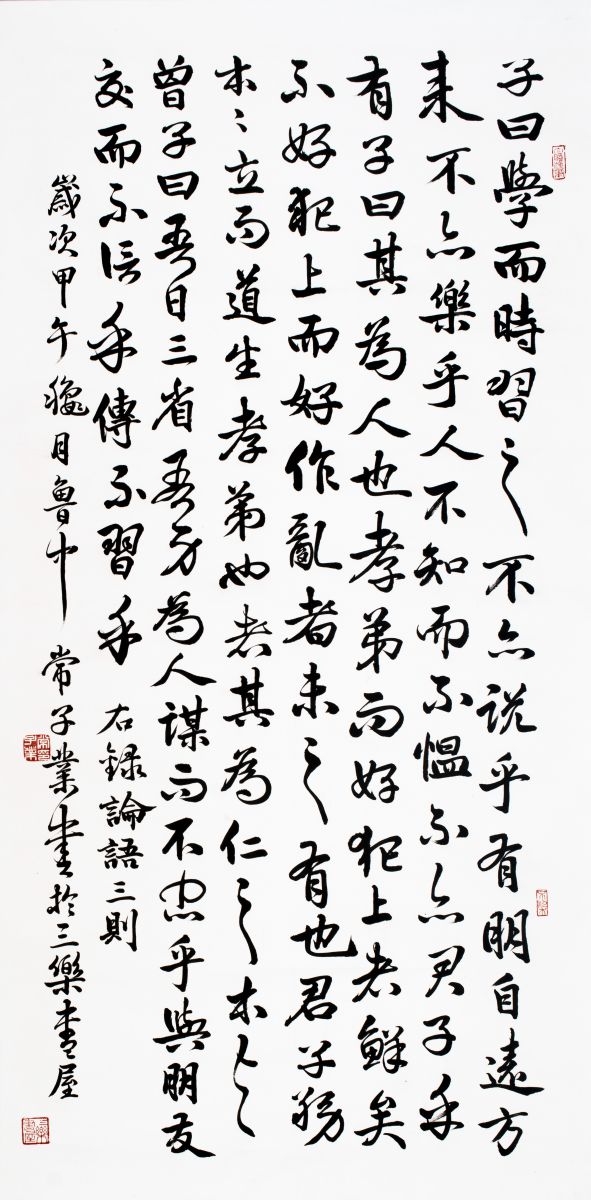 子曰學而時習之不亦說乎有朋自遠方
來不亦樂乎人不知而不慍不亦君子乎
有子曰其為人也孝弟而好犯上者鮮矣
不好犯上而好作亂者未之有也君子務
本〻立而道生孝弟也者其為仁之本与
曾子曰吾日三省吾身為人謀而不忠乎與朋友
交而不信乎傳不習乎 右録論語三則
歲次甲午龝月魯中常子業書於三樂書屋